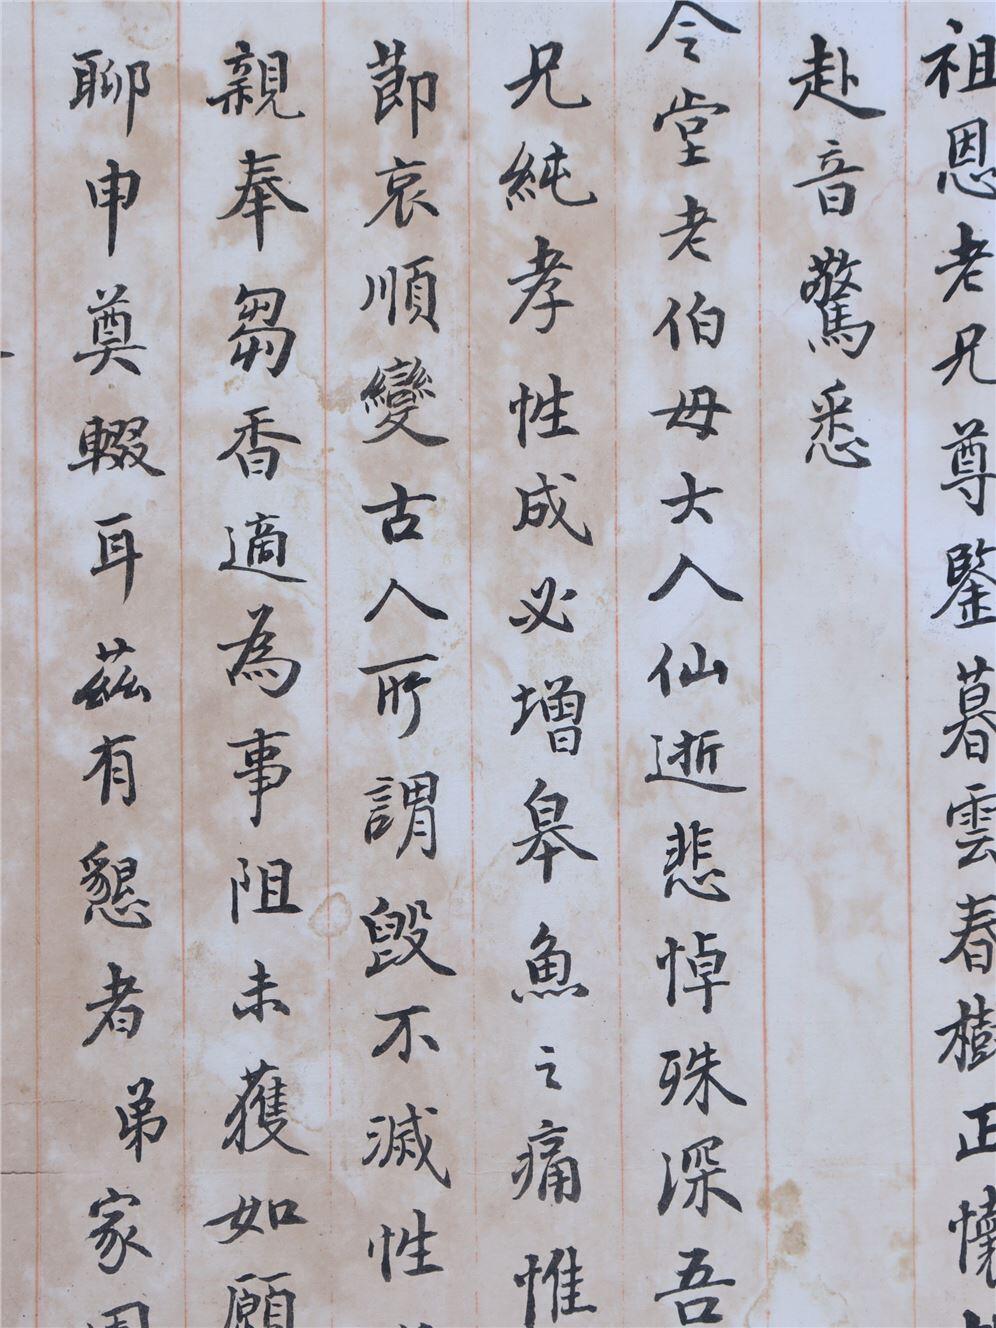 祖恩老兄尊鑒暮雲春樹正懷
赴音驚悉
令堂老伯母大人仙逝悲悼殊深吾
兄純孝性成必增皋魚之痛惟
節哀順變古人所謂毀不滅性
親奉芻香適為事阻未獲如願
聊申奠輟耳茲有懇者弟家